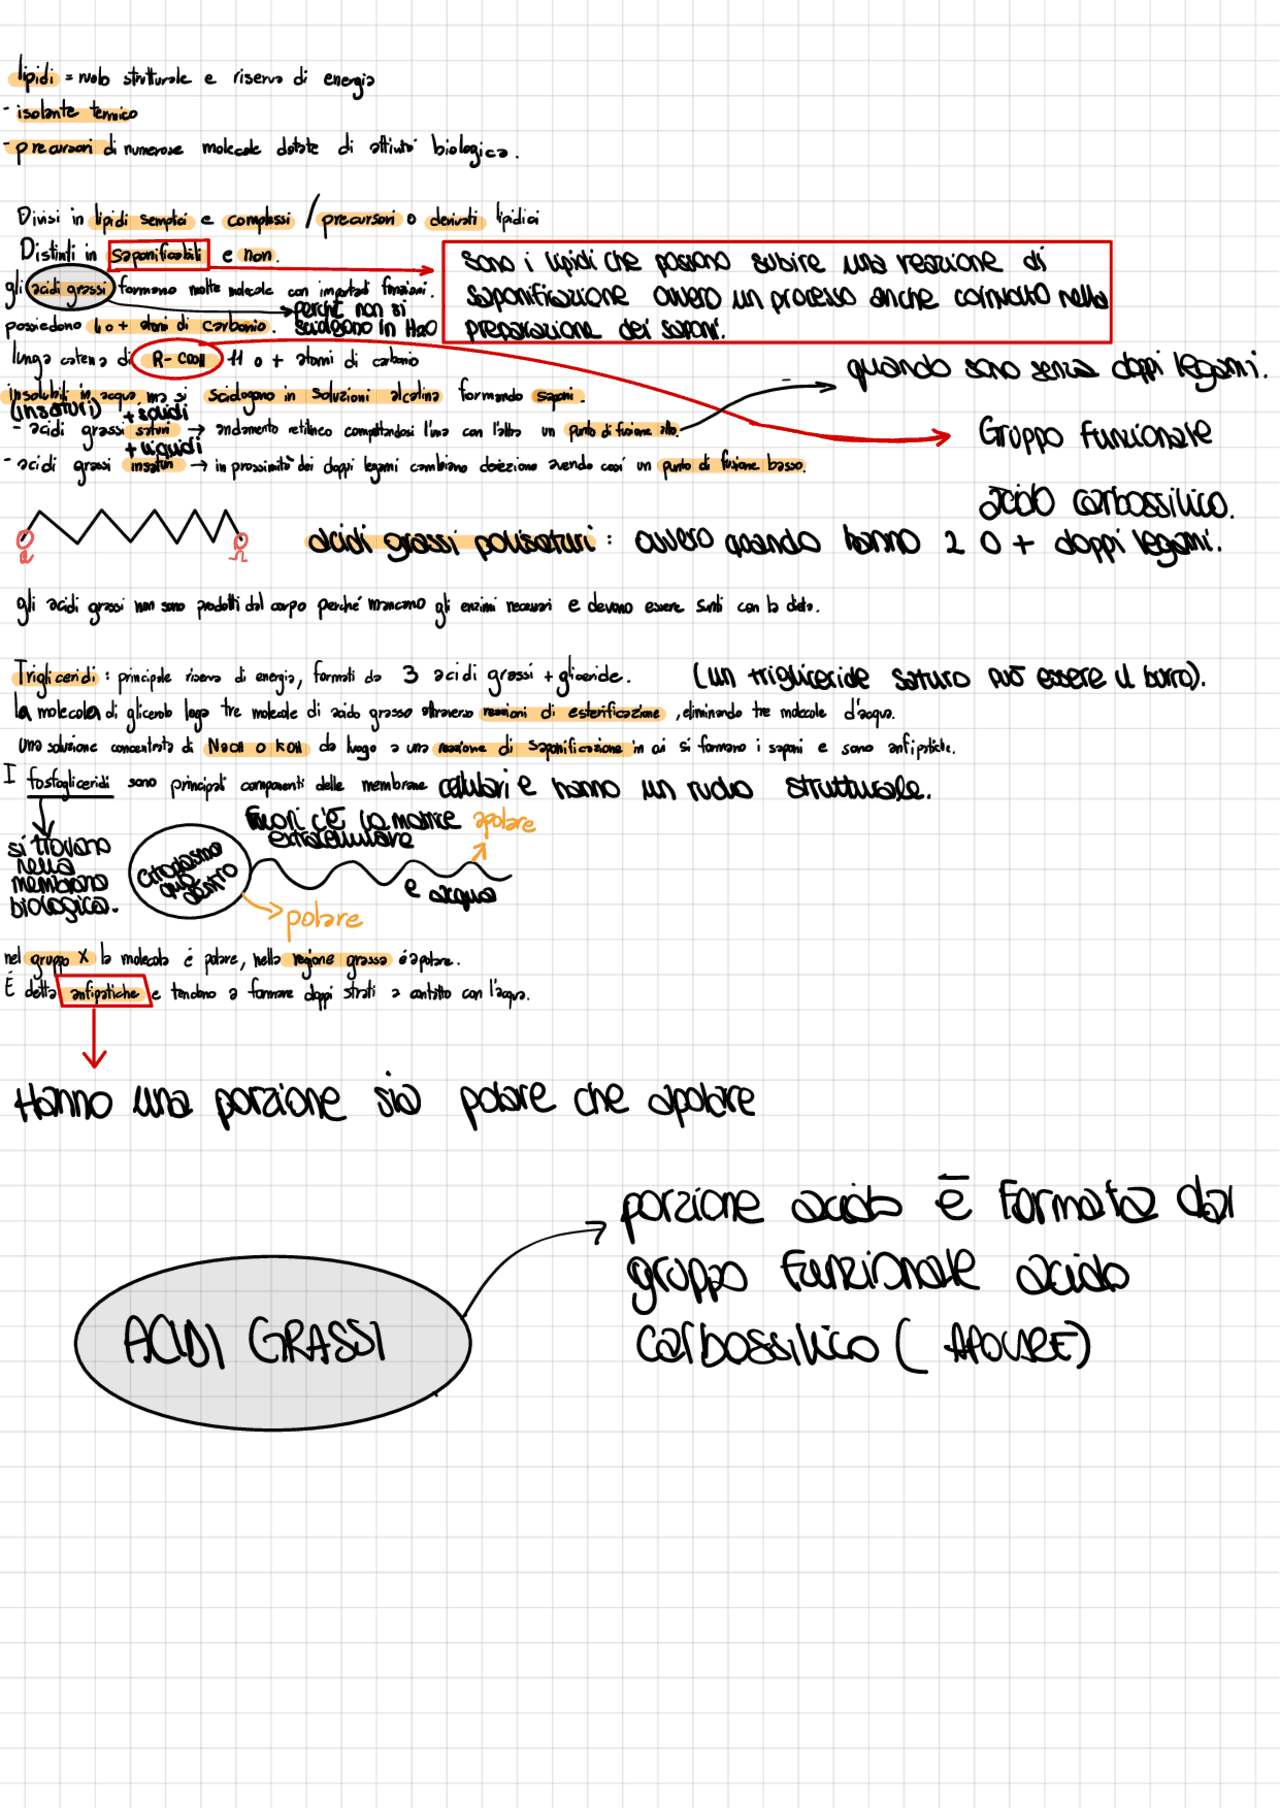 lipidi = ruolo strutturale e riserva di energia
- isolante termico
- precursori di numerose molecole dotate di attività biologica.
Divisi in lipidi semplici e complessi / precursori o derivati lipidici
Distinti in saponificabili e non.
sono i lipidi che possono subire una reazione di
saponificazione ovvero un processo anche coinvolto nella
preparazione dei saponi.
gli acidi grassi formano molte molecole con importanti funzioni.
perché non si
sciolgono in H2O
possiedono 4 o + atomi di carbonio.
lunga catena di R-COOH 11 o + atomi di carbonio
quando sono senza doppi legami.
insolubili in acqua ma si sciolgono in soluzioni alcaline formando saponi.
(insaturi) + solidi
- acidi grassi saturi → andamento rettilineo compattandosi l'uno con l'altro un punto di fusione alto.
Gruppo funzionale
acido carbossilico.
+ liquidi
- acidi grassi insaturi → in prossimità dei doppi legami cambiano direzione avendo così un punto di fusione basso.
acidi grassi polisaturi : ovvero quando hanno 2 o + doppi legami.
gli acidi grassi non sono prodotti dal corpo perché mancano gli enzimi necessari e devono essere assunti con la dieta.
Trigliceridi : principale riserva di energia, formati da 3 acidi grassi +
(un trigliceride saturo può essere il burro).
la molecola di glicerolo lega tre molecole di acido grasso attraverso reazioni di esterificazione, eliminando tre molecole d'acqua.
Una soluzione concentrata di NaOH o KOH da luogo a una reazione di saponificazione in cui si formano i saponi e sono anfipatiche.
I fosfogliceridi sono principali componenti delle membrane cellulari e hanno un ruolo strutturale.
si trovano
nella
membrana
biologica.
citoplasma
qua
dentro
fuori c'è la matrice
extracellulare
e acqua
apolare
polare
nel gruppo X la molecola è polare, nella regione grassa è apolare.
È detta anfipatiche e tendono a formare doppi strati a contatto con l'acqua.
Hanno una porzione sia polare che apolare
ACIDI GRASSI
porzione acida è formata dal
gruppo funzionale acido
carbossilico ( APOLARE)